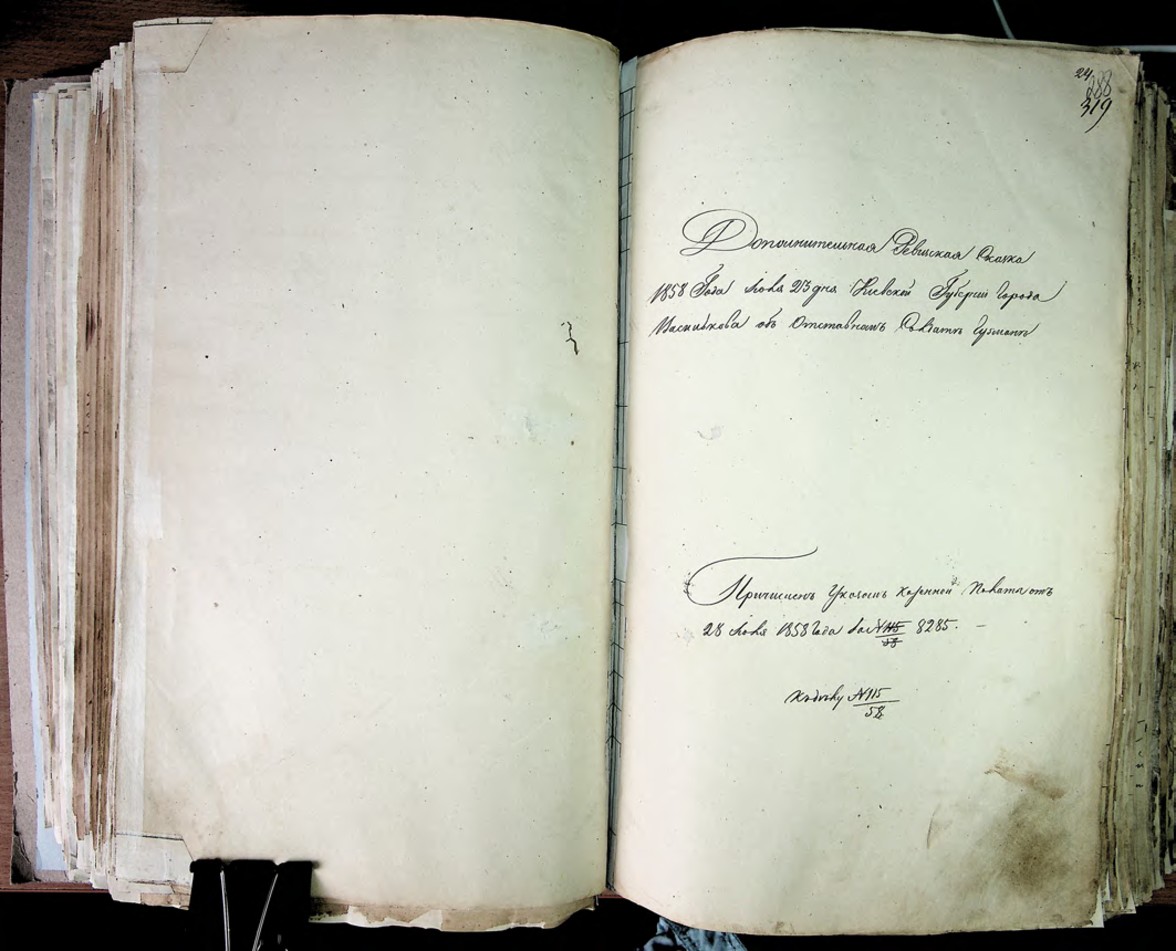 24
288
319
Дополнительная Ревизская Сказка
1858 Года Июля 23 дня Киевской Губернии Города
Василькова объ Отставномъ Солдатѣ Гузманѣ
Причисленъ Указомъ Казенной Палаты отъ
28 Июля 1858 Года за № 8285.
Къ дѣлу № 115
58